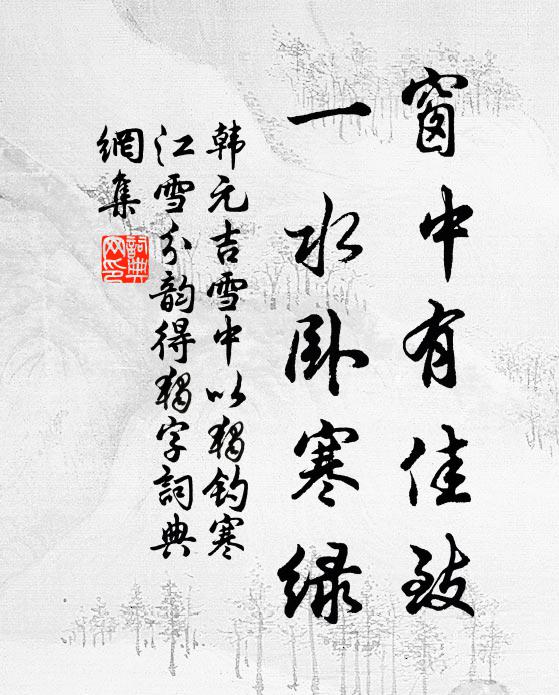 窗中有佳致
一水卧寒绿
韩元吉雪中以独钓寒
江雪分韵得独字詞典
網集
詞典
网印